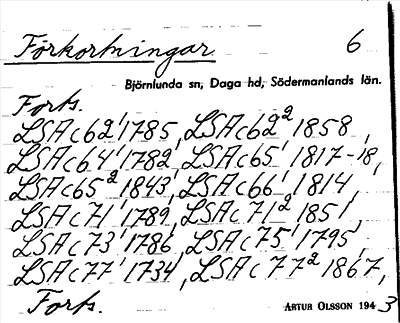 Förkortningar 6
Björnlunda sn, Daga hd, Södermanlands län.
Forts.
LSAc62¹ 1785, LSAc62² 1858,
LSAc64¹ 1782, LSAc65¹ 1817-18,
LSAc65² 1843, LSAc66¹ 1814,
LSAc71¹ 1789, LSAc71² 1851,
LSAc73¹ 1786, LSAc75¹ 1795,
LSAc77¹ 1734, LSAc77² 1867,
Forts. ARTUR OLSSON 1943